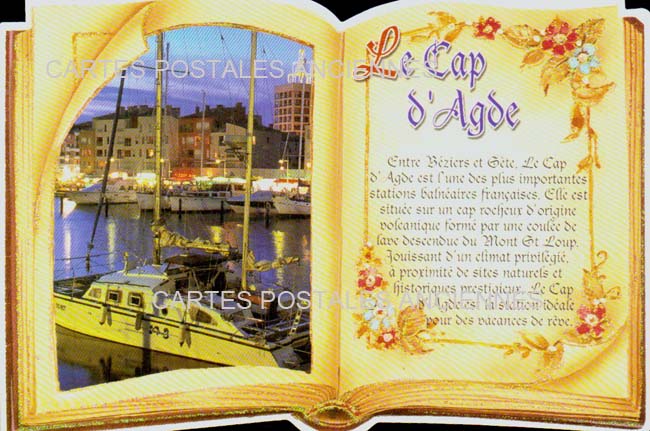 CARTES POSTALES ANCIENNES
Le Cap
d'Agde
Entre Béziers et Sète, Le Cap
d'Agde est l'une des plus importantes
stations balnéaires françaises. Elle est
située sur un cap rocheux d'origine
volcanique formé par une coulée de
lave descendue du Mont St Loup.
Jouissant d'un climat privilégié,
à proximité de sites naturels et
historiques prestigieux, Le Cap
d'Agde est la station idéale
pour des vacances de rêve.
CARTES POSTALES ANCIENNES